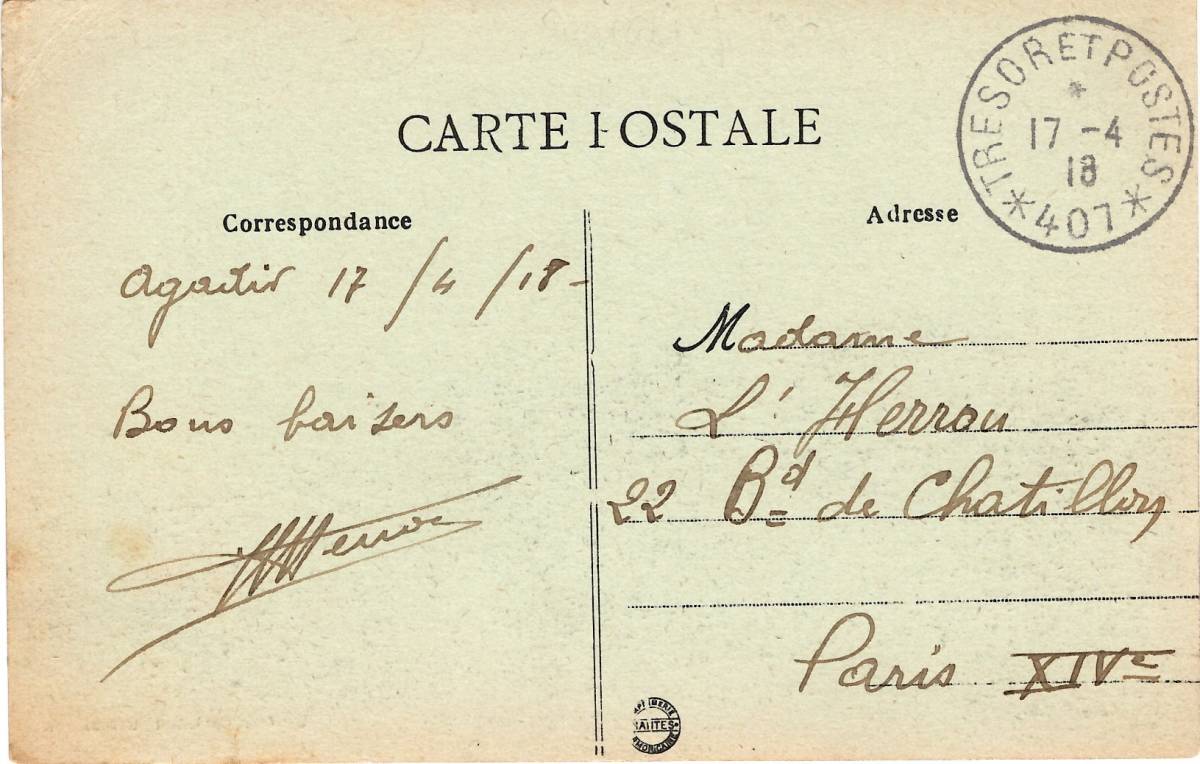 CARTE POSTALE
TRESOR ET POSTES
*
17 -4
18
* 407 *
Correspondance
Agadir 17/4/18-
Bons baisers
Adresse
Madame
L'Herrou
22 Bd de Chatillon
Paris XIVe
NANTES